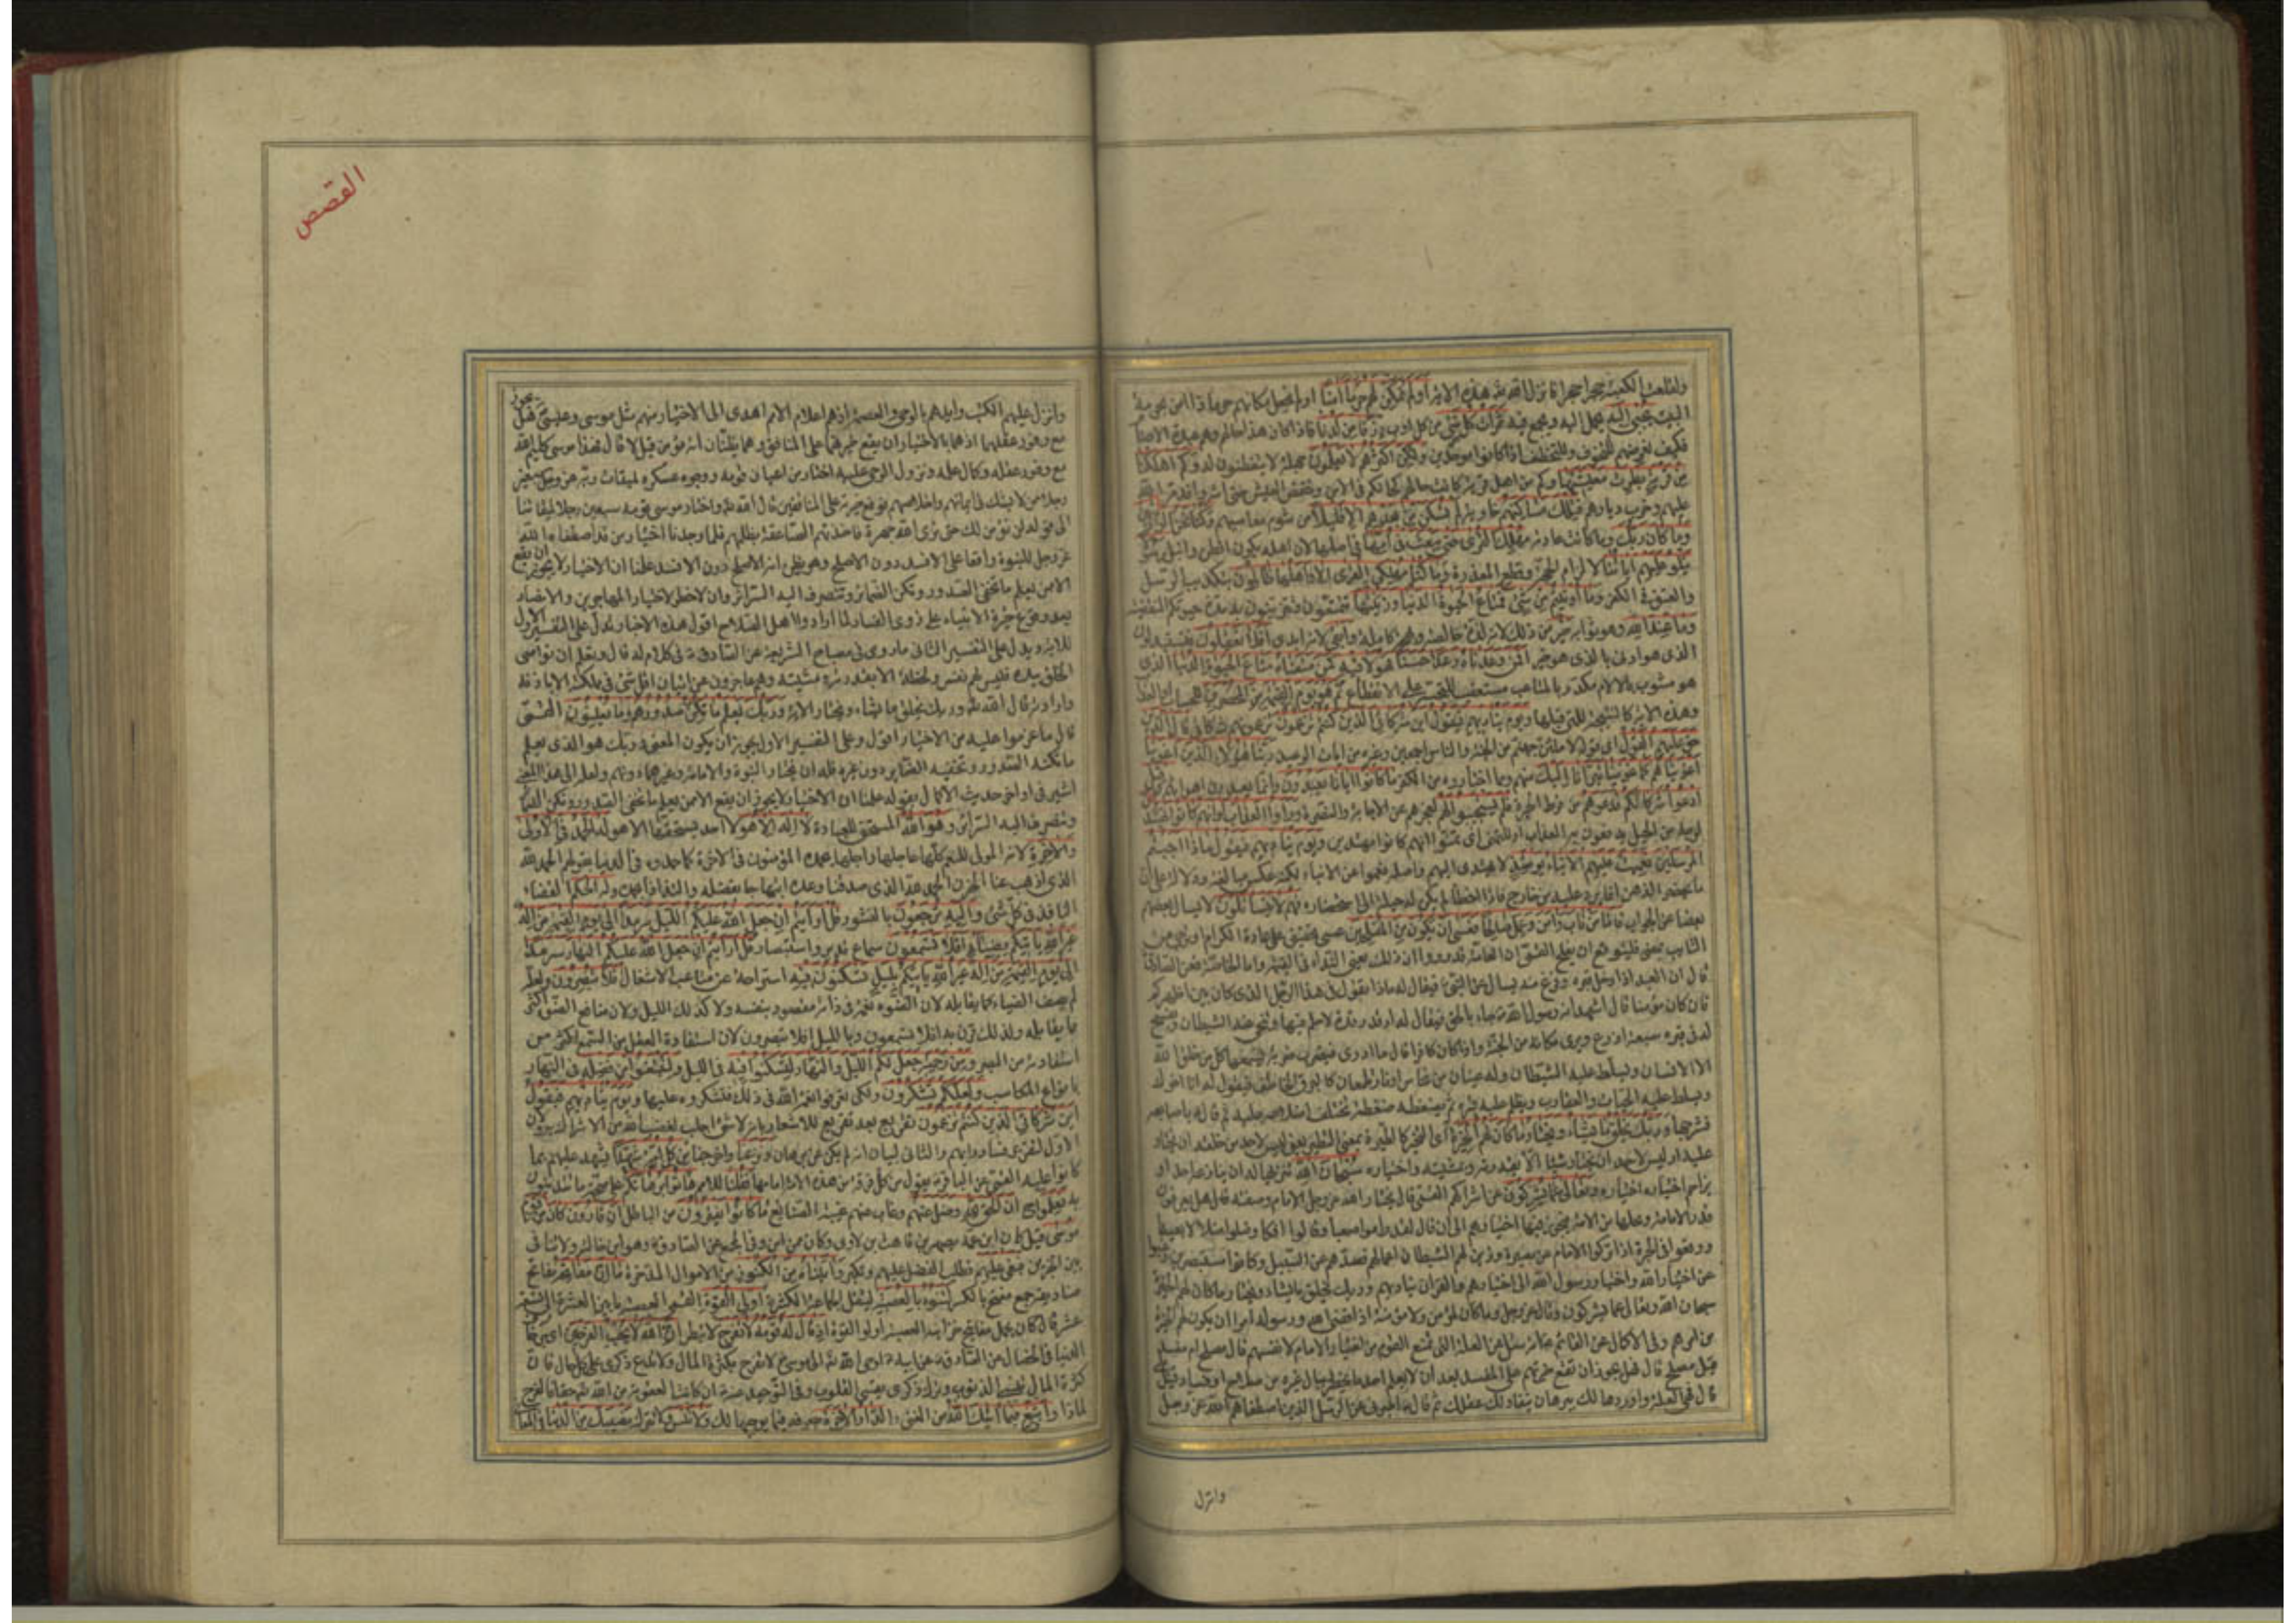 ولنقلعن الكعبة حجرا حجرا فانزل الله هذه الاية اولم نمكن لهم حرما امنا اولم نجعل مكانهم حرما ذا امن بحرمة
البيت يجبى اليه يحمل اليه ويجمع فيه ثمرات كل شئ من كل اوب رزقا من لدنا فاذا كان هذا حالهم وهم عبدة الاصنام
فكيف نعرضهم للتخوف والتخطف اذا كانوا موحدين ولكن اكثرهم لا يعلمون جهلة لا يتفطنون له وكم اهلكنا
من قرية بطرت معيشتها وكم من اهل قرية كانت حالهم كحالكم في الامن وخفض العيش حتى اشروا فدمر الله
عليهم وخرب ديارهم فتلك مساكنهم خاوية لم تسكن من بعدهم الا قليلا من شوم معاصيهم وكنا نحن الوارثين
وما كان ربك وما كانت عادته مهلك القرى حتى يبعث في امها في اصلها لان اهله يكون افطن وانبل رسولا
يتلو عليهم اياتنا لالزام الحجة وقطع المعذرة وما كنا مهلكي القرى الا واهلها ظالمون بتكذيب الرسل
والعتو في الكفر وما اوتيتم من شئ فمتاع الحيوة الدنيا وزينتها تتمتعون وتتزينون به مدة حيوتكم المنقضية
وما عند الله وهو ثوابه خير من ذلك لانه لذة خالصة وبهجة كاملة وابقى لانه ابدي افلا تعقلون فتستبدلون
الذي هو ادنى بالذي هو خير افمن وعدناه وعدا حسنا فهو لاقيه كمن متعناه متاع الحيوة الدنيا الذي
هو مشوب بالالام مكدر بالمتاعب مستعقب للتحسر على الانقطاع ثم هو يوم القيمة من المحضرين للحساب او العذاب
وهذه الاية كالنتيجة للتي قبلها ويوم يناديهم فيقول اين شركائي الذين كنتم تزعمون تزعمونهم شركائي قال الذين
حق عليهم القول اي قوله لاملئن جهنم من الجنة والناس اجمعين وغيره من ايات الوعيد ربنا هؤلاء الذين اغوينا
اغويناهم كما غوينا تبرانا اليك منهم ومما اختاروه من الكفر ما كانوا ايانا يعبدون وانما يعبدون اهواءهم وقيل
ادعوا شركاءكم فدعوهم من فرط الحيرة فلم يستجيبوا لهم لعجزهم عن الاجابة والنصرة وراوا العذاب لو انهم كانوا يهتدون
لوجه من الحيل يدفعون به العذاب او للتمني اي تمنوا انهم كانوا مهتدين ويوم يناديهم فيقول ماذا اجبتم
المرسلين فعميت عليهم الانباء يومئذ لا تهتدي اليهم واصله فعموا عن الانباء لكنه عكس مبالغة ودلالة على ان
ما يحضر الذهن انما يرد عليه من خارج فاذا اخطأ لم يكن له حيلة الى استحضاره فهم لا يتساءلون لا يسأل بعضهم
بعضا عن الجواب فاما من تاب وامن وعمل صالحا فعسى ان يكون من المفلحين عسى تحقيق على عادة الكرام او ترج من
التائب بمعنى فليتوقع ان يفلح القمي ان العامة قد رووا ان ذلك يعني النداء في القيمة واما الخاصة فعن الصادق
قال ان العبد اذا دخل قبره وفزع منه يسال عن النبي فيقال له ماذا تقول في هذا الرجل الذي كان بين اظهركم
فان كان مؤمنا قال اشهد انه رسول الله جاء بالحق فيقال له ارقد رقدة لا حلم فيها ويتنحى عنه الشيطان ويفسح
له في قبره سبعة اذرع ويرى مكانه من الجنة واذا كان كافرا قال ما ادري فيضرب ضربة يسمعها كل من خلق الله
الا الانسان ويسلط عليه الشيطان وله عينان من نحاس او نار يلمعان كالبرق الخاطف فيقول له انا اخوك
ويسلط عليه الحيات والعقارب ويظلم عليه قبره ثم يضغطه ضغطة يختلف اضلاعه عليه ثم قال باصابعه
فشرجها وربك يخلق ما يشاء ويختار ما كان لهم الخيرة اي التخير كالطيرة بمعنى التطير يعني ليس لاحد من خلقه ان يختار
عليه او ليس لاحد ان يختار شيئا الا بقدرته ومشيته واختياره سبحان الله تنزيها له ان ينازعه احد او
يزاحم اختياره اختيار وتعالى عما يشركون عن اشراكهم القمي قال يختار الله عز وجل الامام وصفته قال هل يعرفون
قدر الامامة ومحلها من الامة فيجوز فيها اختيارهم الى ان قال لقد راموا صعبا وقالوا افكا وضلوا ضلالا بعيدا
ووقعوا في الحيرة اذ تركوا الامام عن بصيرة وزين لهم الشيطان اعمالهم فصدهم عن السبيل وكانوا مستبصرين رغبوا
عن اختيار الله واختيار رسول الله الى اختيارهم والقران يناديهم وربك يخلق ما يشاء ويختار ما كان لهم الخيرة
سبحان الله وتعالى عما يشركون وقال عز وجل وما كان لمؤمن ولا مؤمنة اذا قضى الله ورسوله امرا ان يكون لهم الخيرة
من امرهم وفي الاكمال عن القائم انه سئل عن العلة التي تمنع القوم من اختيار الامام لانفسهم قال مصلح ام مفسد
قيل مصلح قال فهل يجوز ان تقع خيرتهم على المفسد بعد ان لا يعلم احد ما يخطر ببال غيره من صلاح او فساد قيل
قال فهي العلة واوردها لك ببرهان ينقاد لك عقلك ثم قال اخبرني عن الرسل الذين اصطفاهم الله عز وجل
وانزل
القصص
وانزل عليهم الكتب وايدهم بالوحي والعصمة اذ هم اعلام الامم اهدى الى الاختيار منهم مثل موسى وعيسى هل يجوز
مع وفور عقلهما اذ هما بالاختيار ان يقع خيرتهما على المنافق وهما يظنان انه مؤمن قيل لا قال فهذا موسى كليم الله
مع وفور عقله وكمال علمه ونزول الوحي عليه اختار من اعيان قومه ووجوه عسكره لميقات ربه عز وجل سبعين
رجلا ممن لا يشك في ايمانهم واخلاصهم فوقع خيرته على المنافقين قال الله واختار موسى قومه سبعين رجلا لميقاتنا
الى قوله لن نؤمن لك حتى نرى الله جهرة فاخذتهم الصاعقة بظلمهم فلما وجدنا اختيار من قد اصطفاه الله
عز وجل للنبوة واقعا على الافسد دون الاصلح وهو يظن انه الاصلح دون الافسد علمنا ان الاختيار لا يجوز ان يقع
الا ممن يعلم ما تخفي الصدور وتكن الضمائر وتنصرف اليه السرائر وان لا خطر لاختيار المهاجرين والانصار
بعد وقوع خيرة الانبياء على ذوي الفساد لما ارادوا اهل الصلاح اقول هذه الاخبار تدل على التفسير الاول
للاية ويدل على التفسير الثاني ما روي في مصباح الشريعة عن الصادق في كلام له قال وتعلم ان نواصي
الخلق بيده فليس لهم نفس ولحظة الا بقدرته ومشيته وهم عاجزون عن اتيان اقل شئ في مملكته الا باذنه
وارادته قال الله وربك يخلق ما يشاء ويختار الاية وربك يعلم ما تكن صدورهم وما يعلنون القمي
قال ما عزموا عليه من الاختيار اقول وعلى التفسير الاول يجوز ان يكون المعنى وربك هو الذي يعلم
ما تكنه الصدور وتخفيه الضماير دون غيره فله ان يختار للنبوة والامامة وغيرهما دونهم ولعله الى هذا المعنى
اشير في اواخر حديث الاكمال بقوله علمنا ان الاختيار لا يجوز ان يقع الا ممن يعلم ما تخفي الصدور وتكن الضمائر
وتنصرف اليه السرائر وهو الله المستحق للعبادة لا اله الا هو لا احد يستحقها الا هو له الحمد في الاولى
والاخرة لانه المولى للنعم كلها عاجلها واجلها يحمده المؤمنون في الاخرة كما حمدوه في الدنيا بقولهم الحمد لله
الذي اذهب عنا الحزن الحمد لله الذي صدقنا وعده ابتهاجا بفضله والتذاذا بحمده وله الحكم القضاء
النافذ في كل شئ واليه ترجعون بالنشور قل ارايتم ان جعل الله عليكم الليل سرمدا الى يوم القيمة من اله
غير الله ياتيكم بضياء افلا تسمعون سماع تدبر واستبصار قل ارايتم ان جعل الله عليكم النهار سرمدا
الى يوم القيمة من اله غير الله ياتيكم بليل تسكنون فيه استراحة عن متاعب الاشغال افلا تبصرون ولعله
لم يصف الضياء بما يقابله لان الضوء نعمة في ذاته مقصود بنفسه ولا كذلك الليل ولان منافع الضوء اكثر
مما يقابله ولذلك قرن به افلا تسمعون وبالليل افلا تبصرون لان استفادة العقل من السمع اكثر من
استفادته من البصر ومن رحمته جعل لكم الليل والنهار لتسكنوا فيه في الليل ولتبتغوا من فضله في النهار
بانواع المكاسب ولعلكم تشكرون ولكي تعرفوا نعمة الله في ذلك فتشكروه عليها ويوم يناديهم فيقول
اين شركائي الذين كنتم تزعمون تقريع بعد تقريع للاشعار بانه لا شئ اجلب لغضب الله من الاشراك به او
الاول لتقرير فساد رايهم والثاني لبيان انه لم يكن عن برهان ونزعنا واخرجنا من كل امة شهيدا يشهد عليهم بما
كانوا عليه القمي عن الباقر يقول من كل فرقة من هذه الامة امامها فقلنا للامم هاتوا برهانكم على صحة ما تتدينون
به فعلموا ان الحق لله وضل عنهم وغاب عنهم غيبة الضايع ما كانوا يفترون من الباطل ان قارون كان من قوم
موسى قيل كان ابن عمه يصهر بن قاهث بن لاوي وكان ممن امن به وفي المجمع عن الصادق وهو ابن خالته ولا تنافي
بين الخبرين فبغى عليهم فطلب الفضل عليهم وتكبر واتيناه من الكنوز من الاموال المدخرة ما ان مفاتحه مفاتيح
صناديقه جمع مفتح بالكسر لتنوء بالعصبة لتثقل الجماعة الكثيرة اولي القوة القمي العصبة ما بين العشرة الى تسعة
عشر قال كان يحمل مفاتيح خزاينه العصبة اولو القوة اذ قال له قومه لا تفرح لا تبطر ان الله لا يحب الفرحين اي بزخارف
الدنيا في الخصال عن الصادق عن ابيه اوحى الله الى موسى لا تفرح بكثرة المال ولا تدع ذكري على كل حال فان
كثرة المال تنسي الذنوب وترك ذكري يقسي القلوب وفي التوحيد عنه ان كانت العقوبة من الله حقا فالفرح
لماذا وابتغ فيما اتيك الله من الغنى الدار الاخرة بصرفه فيما يوجبها لك ولا تنس ولا تترك نصيبك من الدنيا في المعاني